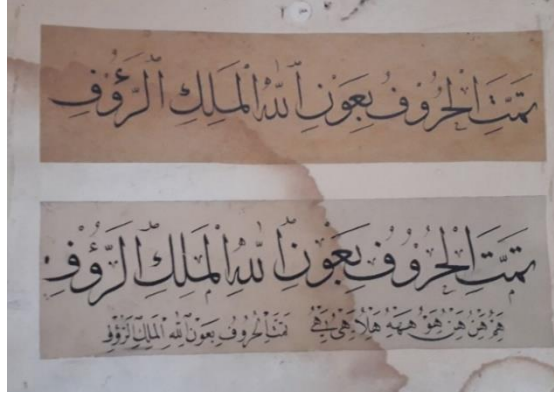 تَمَّتَ الْحُرُوْفُ بِعَوْنِ اللّٰهِ الْمَلِكِ الرَّؤُوْفِ
تَمَّتَ الْحُرُوْفُ بِعَوْنِ اللّٰهِ الْمَلِكِ الرَّؤُوْفِ
تمت الحروف بعون الله الملك الرؤف